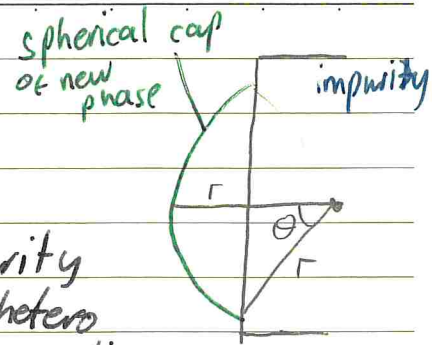 spherical cap
of new
phase
impurity
r
θ
r
rity
hetero